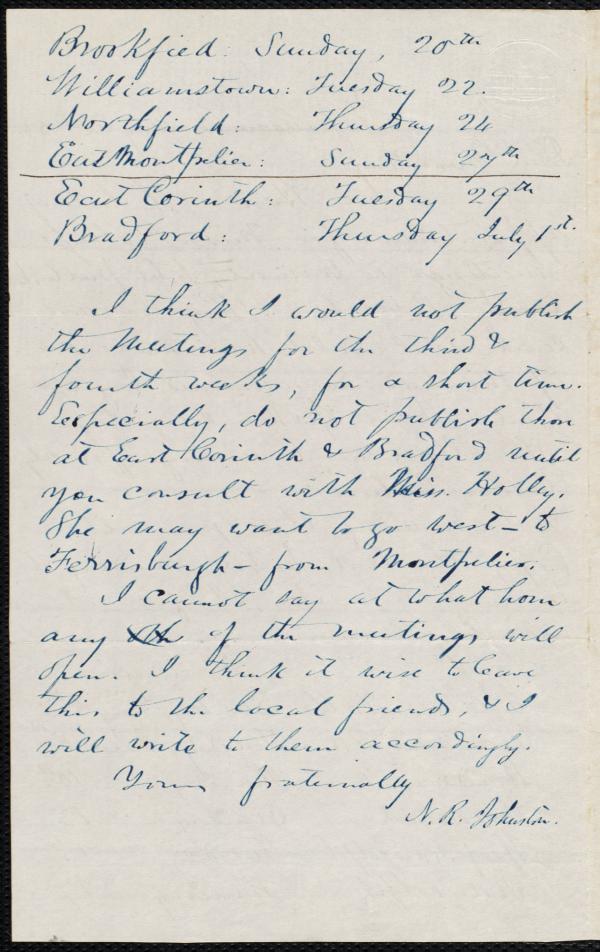 Brookfied: Sunday, 20th
Williamstown: Tuesday 22.
Northfield: Thursday 24
East Montpelier: Sunday 27th
East Corinth: Tuesday 29th
Bradford: Thursday July 1st.
I think I would not publish
the meetings for the third &
fourth weeks, for a short time.
Especially, do not publish thos
at East Corinth & Bradford until
you consult with Miss. Holley.
She may want to go west - to
Ferrisburgh - from Montpelier.
I cannot say at what hour
any of the meetings will
open. I think it wise to leave
this to the local friends, & I
will write to them accordingly.
Yours fraternally
N. R. Johnston.